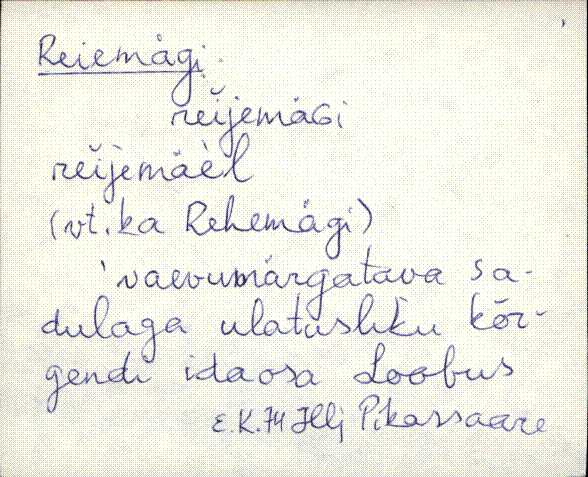 Reiemägi
reĭjemäGi
reĭjemäèl
(vt. ka Rehemägi)
'vaevumärgatava sa-
dulaga ulatusliku kõr-
gendi idaosa Loobus
E.K. 74 Hlj Pikassaare